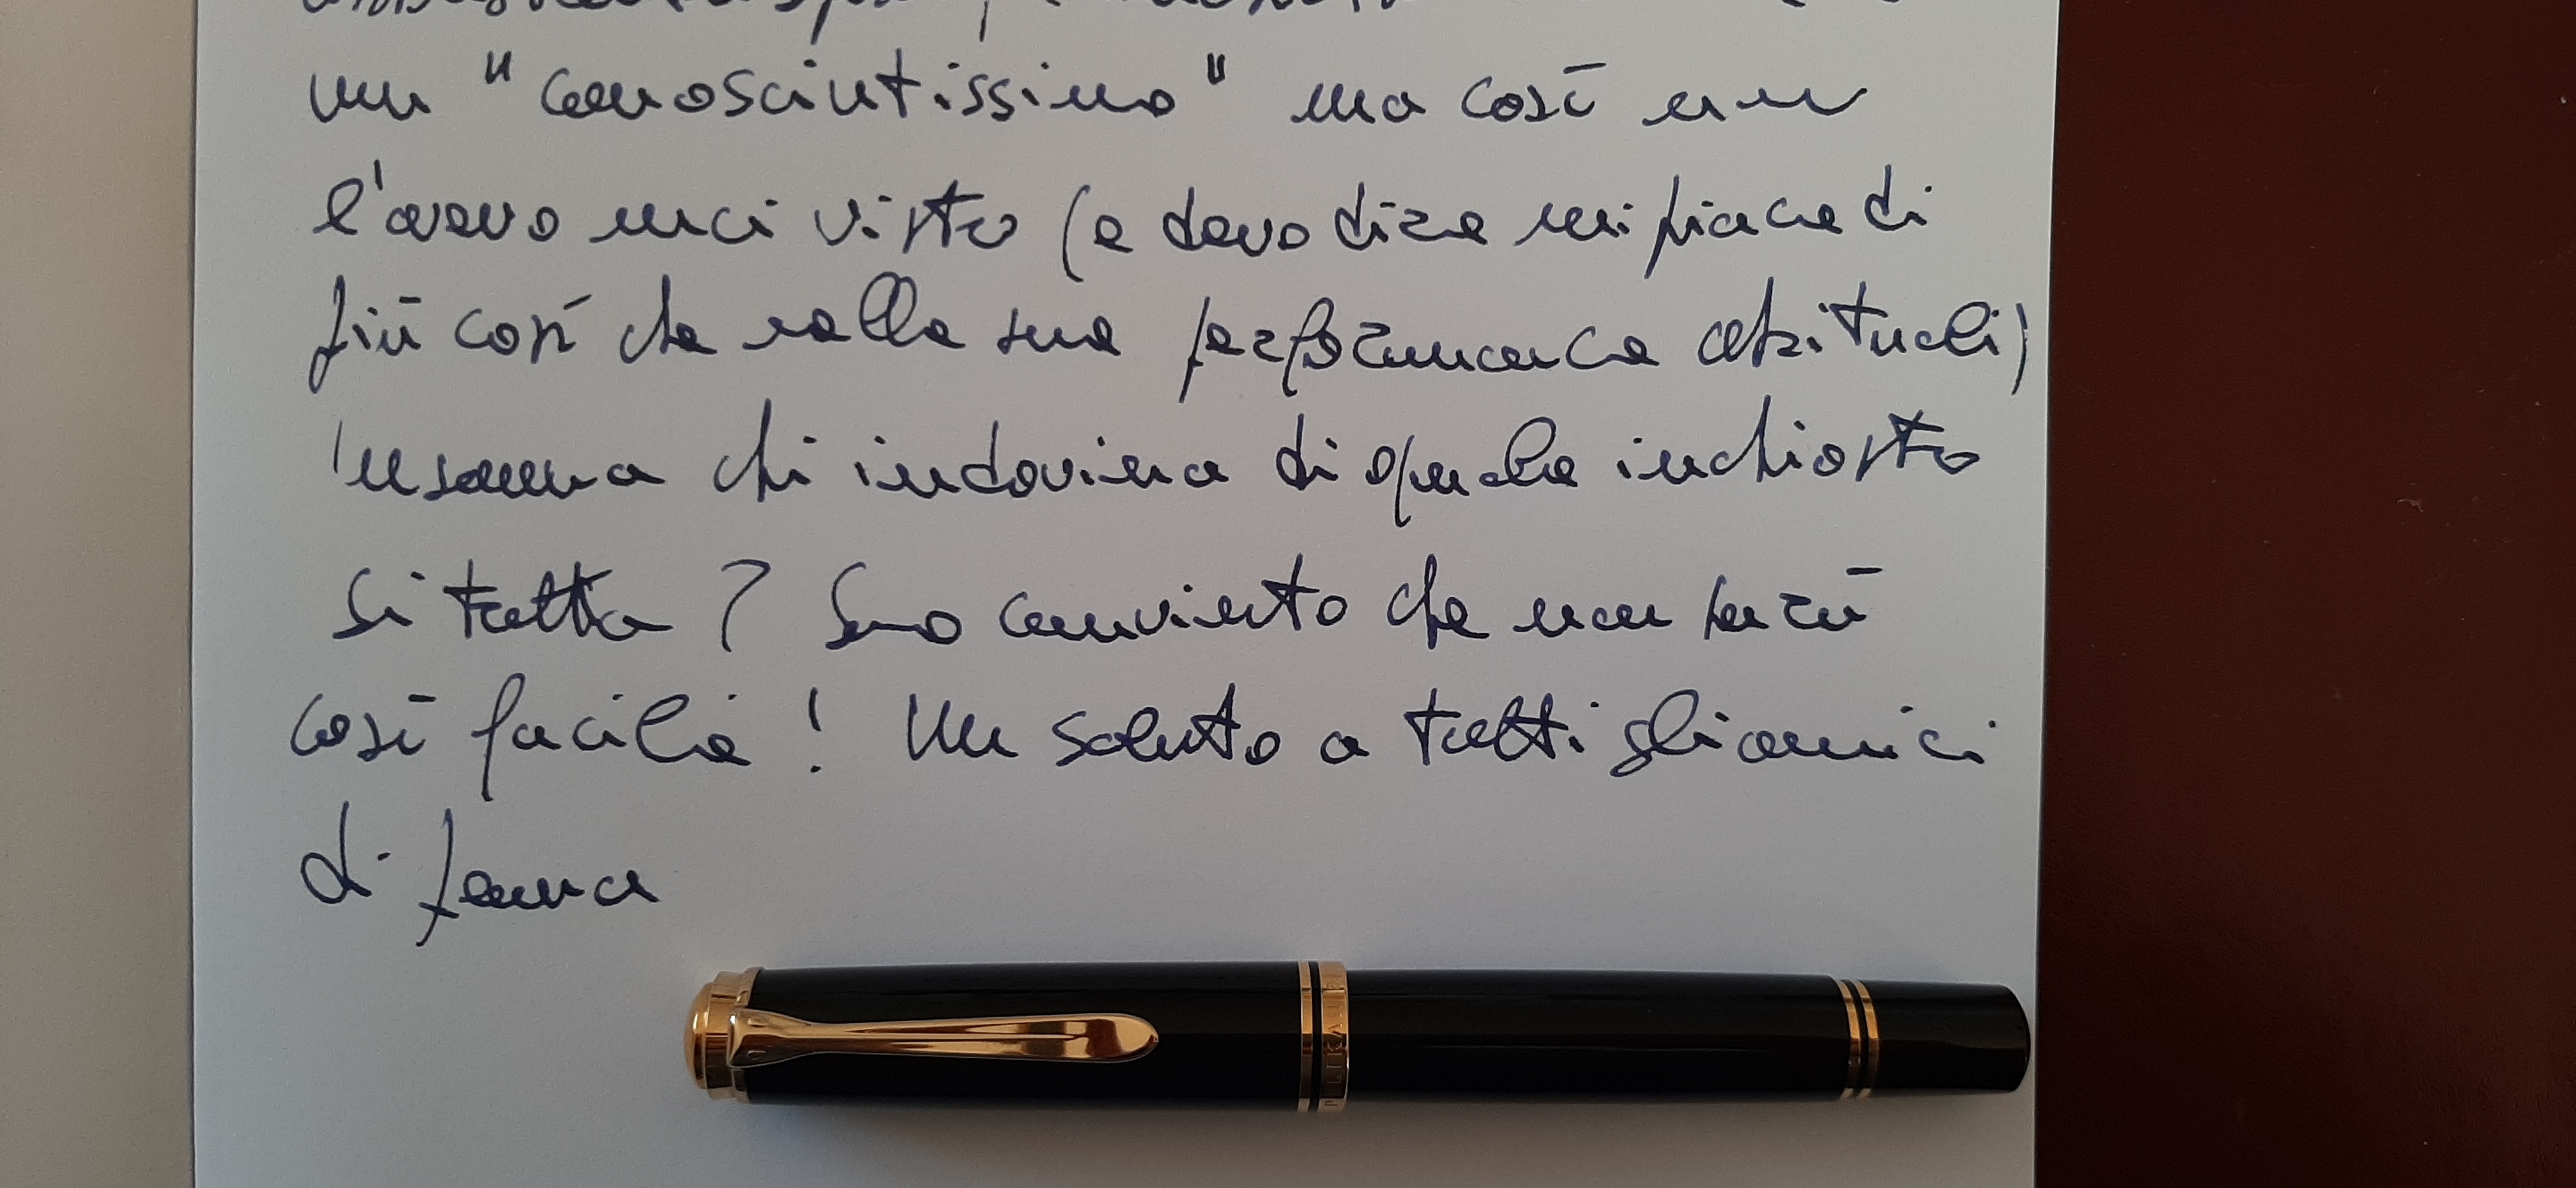 un "conosciutissimo" ma così non
l'avevo mai visto (e devo dire mi piace di
più così che nelle sue performance abituali)
Insomma chi indovina di quale inchiostro
si tratta? Sono convinto che non sarà
così facile! Un saluto a tutti gli amici
di penna
PELIKAN